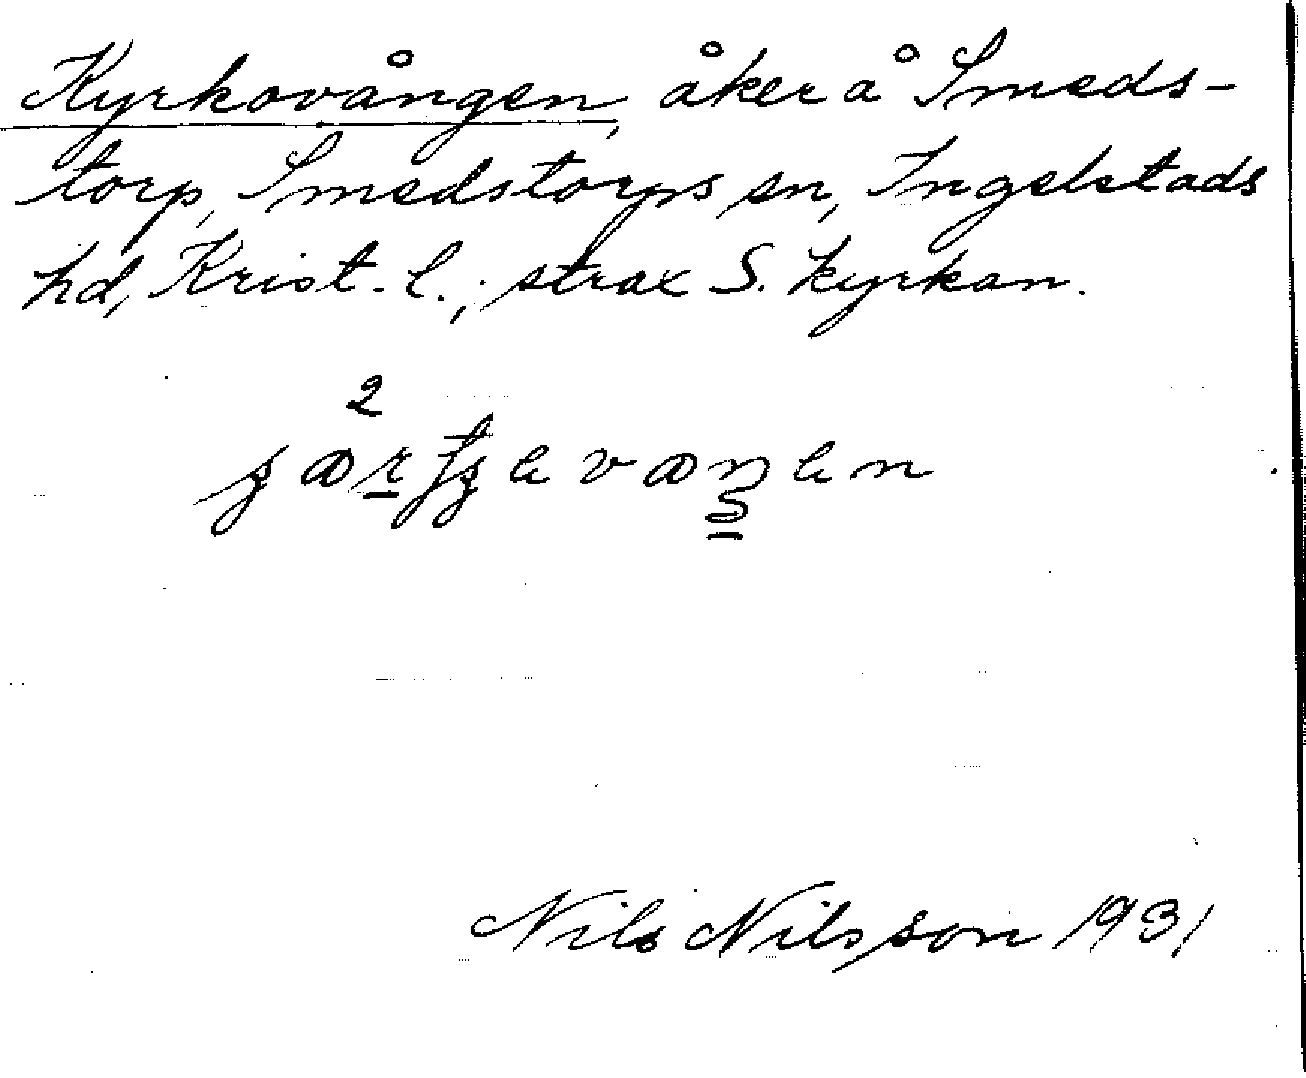 Kyrkovången, åker å Smeds-
torp, Smedstorps sn, Ingelstads
hd, Krist. l.; strax S. kyrkan.
2
Nils Nilsson 1931